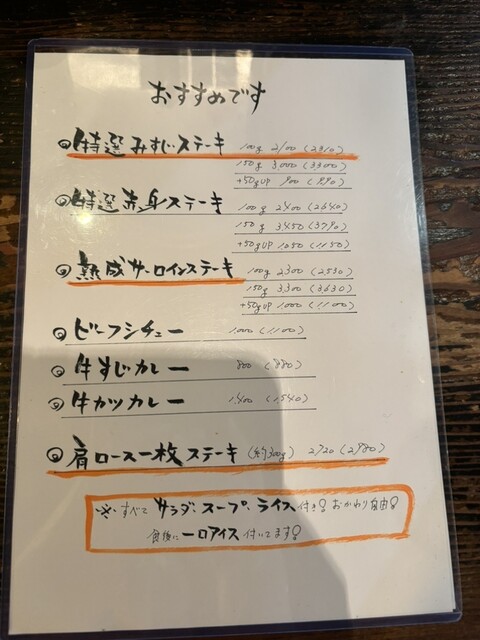 おすすめです
◎特選みすじステーキ 100g 2100(2310)
150g 3000(3300)
+50gUP 900(990)
◎特選赤身ステーキ 100g 2400(2640)
150g 3450(3790)
+50gUP 1050(1150)
◎熟成サーロインステーキ 100g 2,300(2530)
150g 3,300(3630)
+50gUP 1,000(1,100)
◎ビーフシチュー 1,000(1,100)
◎牛すじカレー 800(880)
◎牛カツカレー 1,400(1,540)
◎肩ロース一枚ステーキ(約300g) 2720(2980)
※すべてサラダ・スープ・ライス付き!おかわり自由!
食後に一口アイス付いてます!